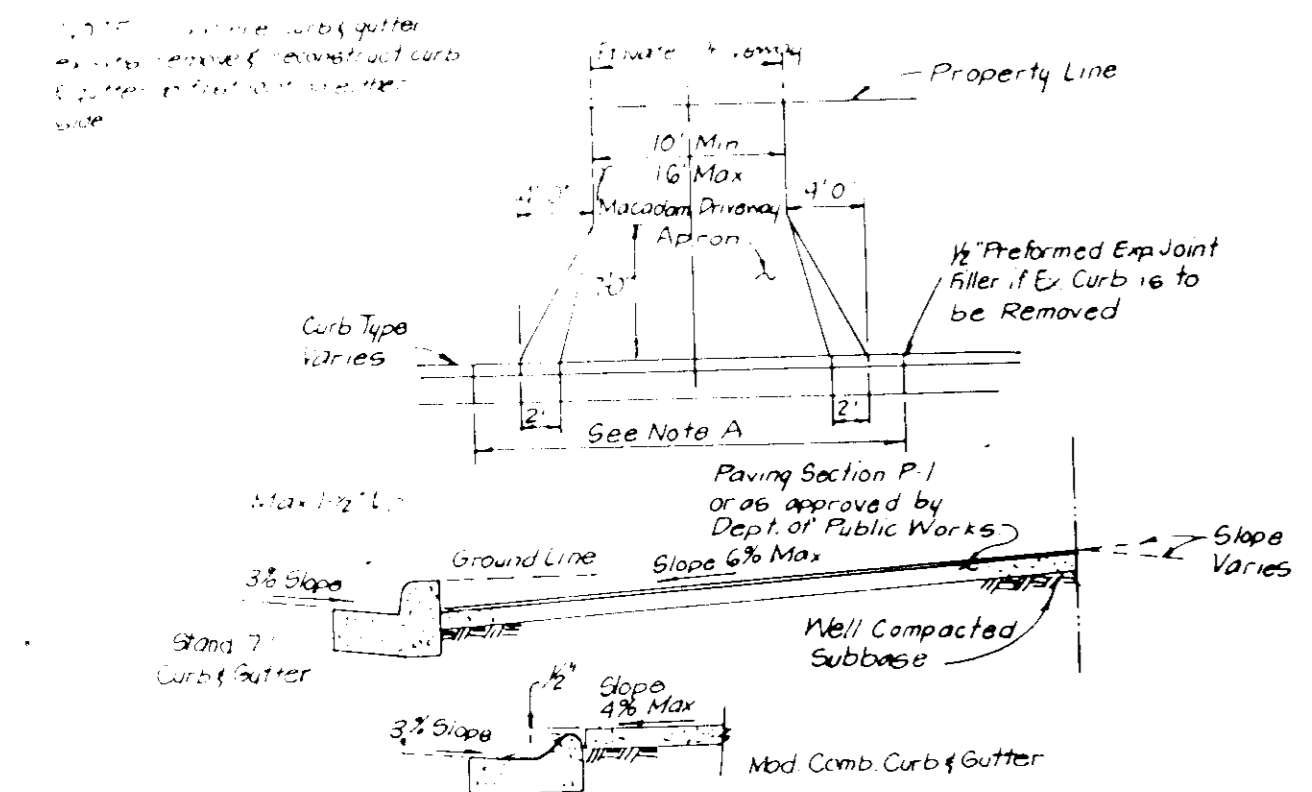 curb & gutter
remove & reconstruct curb
& gutter
side
Private
Property Line
10' Min
16' Max
4'0"
Macadam Driveway
Apron
4'0"
1/2" Preformed Exp. Joint
Filler if Ex. Curb is to
be Removed
Curb Type
Varies
2'
2'
See Note A
Paving Section P-1
or as approved by
Dept. of Public Works
Max 1-1/2"
Ground Line
Slope 6% Max
Slope
Varies
3% Slope
Stand 7"
Curb & Gutter
Well Compacted
Subbase
1/2"
Slope
4% Max
3% Slope
Mod. Comb. Curb & Gutter